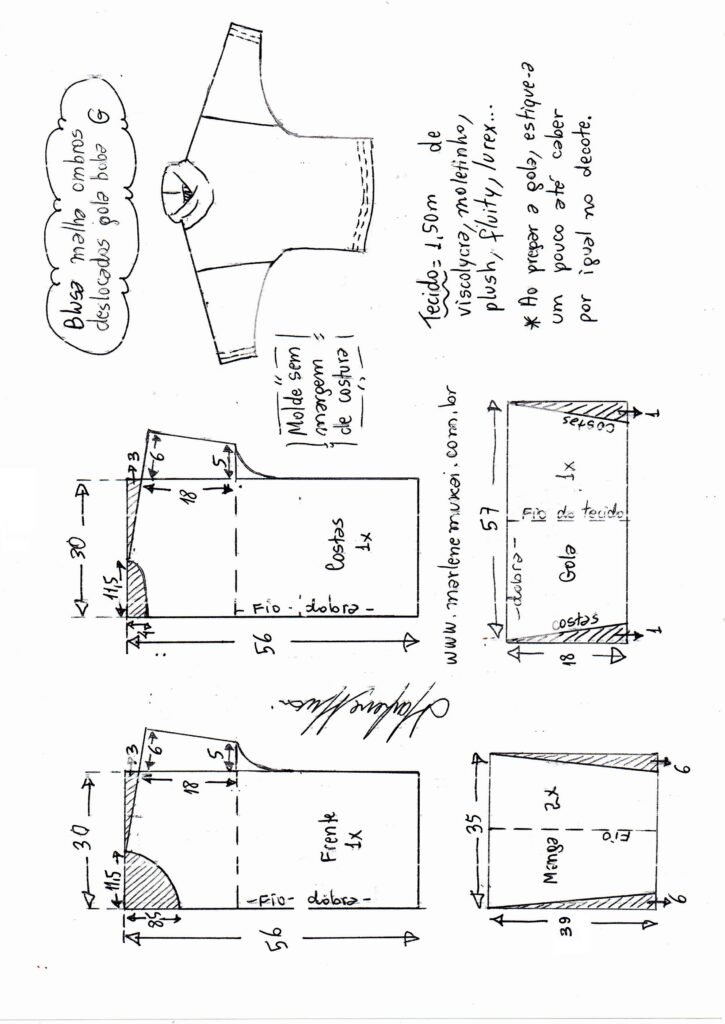 Blusa malha ombros
deslocados gola boba G
30
11,5
3
6
5
18
8,5
Frente
1x
-Fio- dobra-
56
30
11,5
3
6
5
18
Costas
1x
-Fio- dobra-
56
Molde sem
margem
de costura
Tecido = 1,50m de
viscolycra, moletinho,
plush, fluity, lurex...
* Ao prepar a gola, estique-a
um pouco até caber
por igual no decote.
www.marlenemukai.com.br
35
Manga 2x
Fio
39
6
6
57
-dobra-
Gola 1x
Fio do tecido
costas
costas
18
1
1